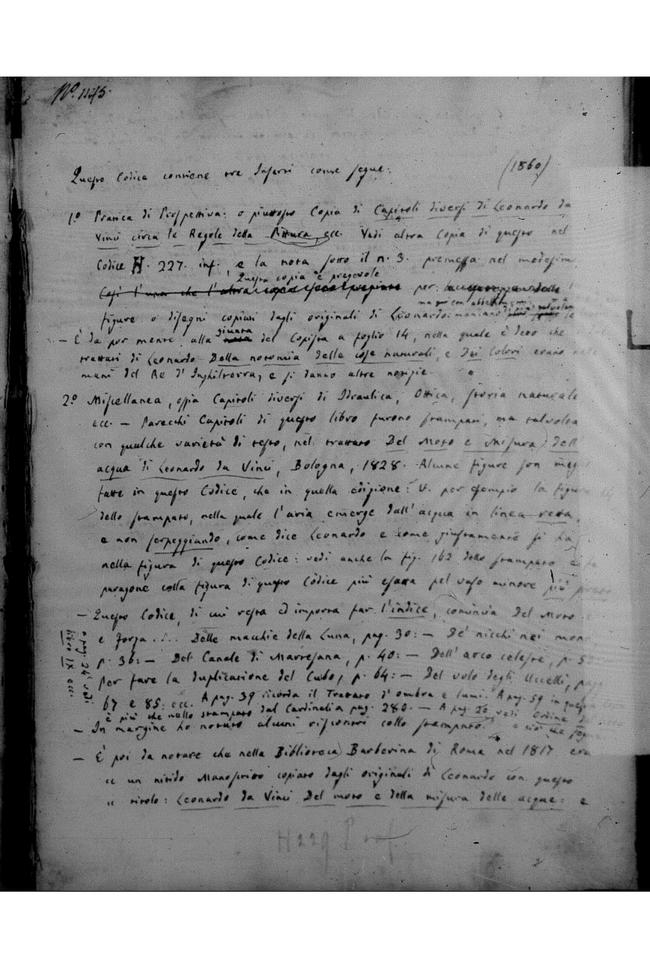 Nº. 1145.
(1860)
Questo Codice contiene tre Inserti come segue:
1.º Pratica di Prospettiva: o piuttosto Copia di Capitoli diversi di Leonardo da
Vinci circa le Regole della Pittura, ecc. Vedi altra Copia di questo nel
Codice H. 227. inf., e la nota sotto il n. 3. premessa nel medesimo
Questa copia è pregevole
Così l'una che l'altra per
figure o disegni copiati dagli originali di Leonardo:
— È da por mente, alla del Copista a foglio 14, nella quale è detto che
trattati di Leonardo Della notomia delle cose naturali, e Dei Colori erano nelle
mani del Re d'Inghilterra, e si danno altre notizie.
2.º Miscellanea, ossia Capitoli diversi di Idraulica, Ottica, Storia naturale
ecc. — Parecchi Capitoli di questo libro furono stampati, ma talvolta
con qualche varietà di testo, nel trattato Del Moto e Misura dell'
acqua di Leonardo da Vinci, Bologna, 1828. Alcune figure son meglio
fatte in questo Codice, che in quella edizione: V. per esempio la figura
dello stampato, nella quale l'aria emerge dall'acqua in linea retta,
e non serpeggiando, come dice Leonardo e come giustamente si ha
nella figura di questo Codice: vedi anche la fig. 162 dello stampato e fa
paragone colla figura di questo Codice più esatta pel vaso minore più
— Questo Codice, di cui resta ed importa far l'indice, comincia Del Moto
e forza.... Delle macchie della Luna, pag. 30: — De' nicchi nei mon
p. 36: — Del Canale di Martesana, p. 40: — Dell'arco celeste, p. 52
Per fare la duplicazione del Cubo, p. 64: — Del volo degli Uccelli, pag.
67 e 85: ecc. A pag. 39 ricorda il Trattato d'ombra e lumi. A pag. 59 in
è più che nello stampato dal Cardinali a pag. 280. — A pag. 20 vedi Ordine
a pag. 24 vedi
libro IX ecc.
— In margine ho notato alcuni riscontri collo stampato.
— È poi da notare che nella Biblioteca Barberina di Roma nel 1817 era
« un nitido Manoscritto copiato dagli originali di Leonardo con questo
« titolo: Leonardo da Vinci Del moto e della misura delle acque: e
H 229 Inf